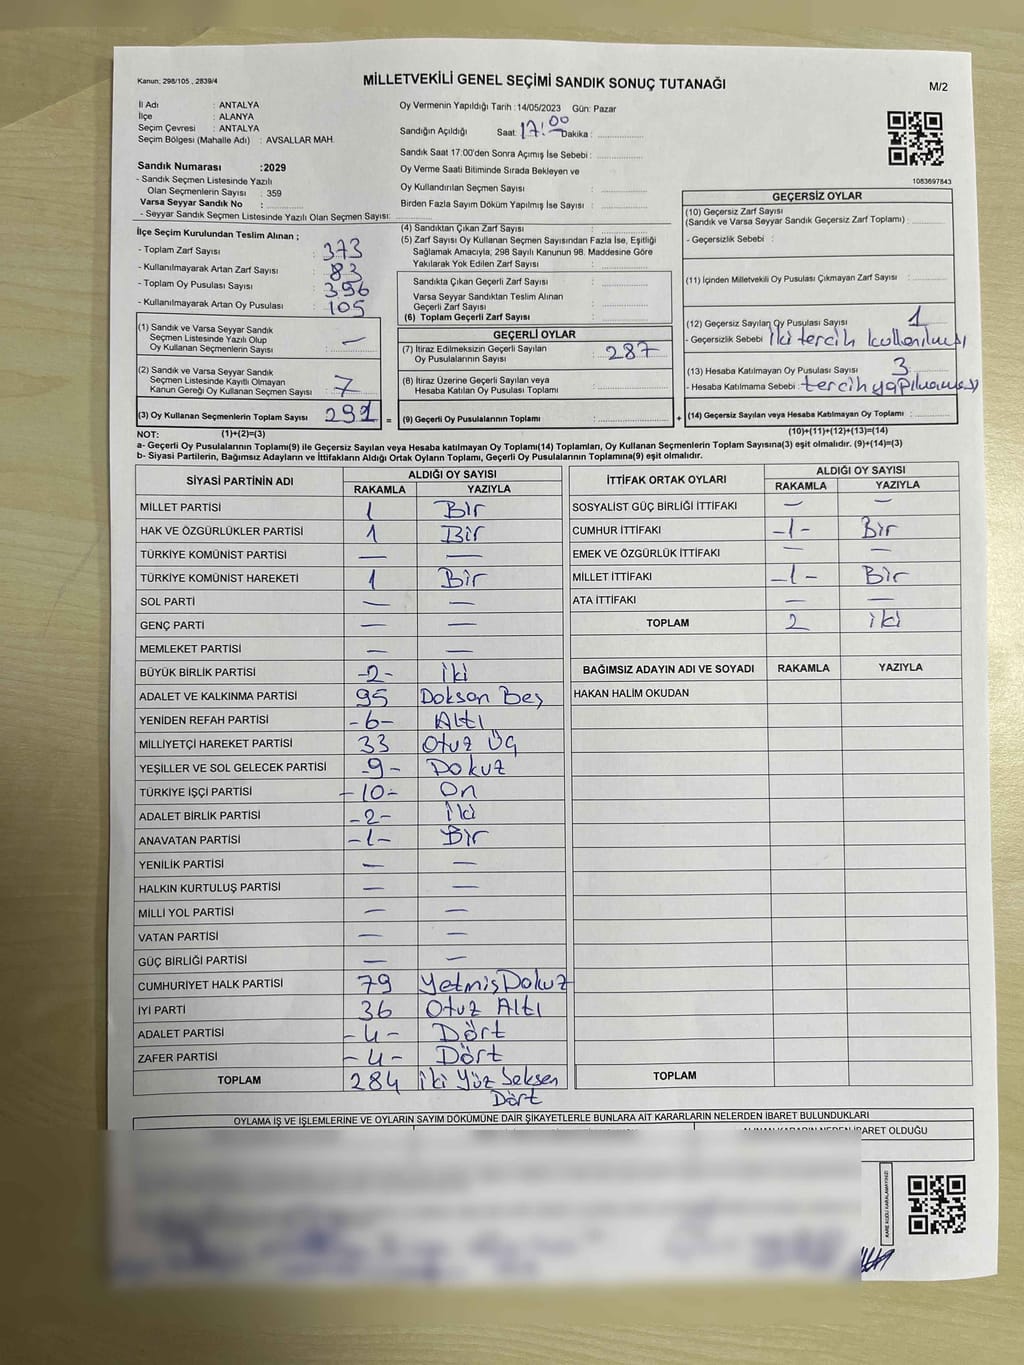 Kanun: 298/105 , 2839/4
MİLLETVEKİLİ GENEL SEÇİMİ SANDIK SONUÇ TUTANAĞI
M/2
İl Adı : ANTALYA
İlçe : ALANYA
Seçim Çevresi : ANTALYA
Seçim Bölgesi (Mahalle Adı) : AVSALLAR MAH.
Sandık Numarası :2029
- Sandık Seçmen Listesinde Yazılı
Olan Seçmenlerin Sayısı : 359
Varsa Seyyar Sandık No :
- Seyyar Sandık Seçmen Listesinde Yazılı Olan Seçmen Sayısı:
Oy Vermenin Yapıldığı Tarih :14/05/2023 Gün: Pazar
Sandığın Açıldığı Saat: 17:00 Dakika :
Sandık Saat 17:00'den Sonra Açımış İse Sebebi :
Oy Verme Saati Bitiminde Sırada Bekleyen ve
Oy Kullandırılan Seçmen Sayısı :
Birden Fazla Sayım Döküm Yapılmış İse Sayısı :
1083697843
İlçe Seçim Kurulundan Teslim Alınan ;
- Toplam Zarf Sayısı : 373
- Kullanılmayarak Artan Zarf Sayısı : 83
- Toplam Oy Pusulası Sayısı : 396
- Kullanılmayarak Artan Oy Pusulası : 105
(1) Sandık ve Varsa Seyyar Sandık
Seçmen Listesinde Yazılı Olup
Oy Kullanan Seçmenlerin Sayısı : —
(2) Sandık ve Varsa Seyyar Sandık
Seçmen Listesinde Kayıtlı Olmayan
Kanun Gereği Oy Kullanan Seçmen Sayısı : 7
(3) Oy Kullanan Seçmenlerin Toplam Sayısı : 291 =
(4) Sandıktan Çıkan Zarf Sayısı :
(5) Zarf Sayısı Oy Kullanan Seçmen Sayısından Fazla İse, Eşitliği
Sağlamak Amacıyla, 298 Sayılı Kanunun 98. Maddesine Göre
Yakılarak Yok Edilen Zarf Sayısı :
Sandıkta Çıkan Geçerli Zarf Sayısı :
Varsa Seyyar Sandıktan Teslim Alınan
Geçerli Zarf Sayısı :
(6) Toplam Geçerli Zarf Sayısı :
GEÇERLİ OYLAR
(7) İtiraz Edilmeksizin Geçerli Sayılan
Oy Pusulalarının Sayısı : 287
(8) İtiraz Üzerine Geçerli Sayılan veya
Hesaba Katılan Oy Pusulası Toplamı :
(9) Geçerli Oy Pusulalarının Toplamı : +
GEÇERSİZ OYLAR
(10) Geçersiz Zarf Sayısı
(Sandık ve Varsa Seyyar Sandık Geçersiz Zarf Toplamı) :
- Geçersizlik Sebebi :
(11) İçinden Milletvekili Oy Pusulası Çıkmayan Zarf Sayısı :
(12) Geçersiz Sayılan Oy Pusulası Sayısı : 1
- Geçersizlik Sebebi : iki tercih kullanılması
(13) Hesaba Katılmayan Oy Pusulası Sayısı : 3
- Hesaba Katılmama Sebebi : tercih yapılmaması
(14) Geçersiz Sayılan veya Hesaba Katılmayan Oy Toplamı :
NOT: (1)+(2)=(3)
(10)+(11)+(12)+(13)=(14)
a- Geçerli Oy Pusulalarının Toplamı(9) ile Geçersiz Sayılan veya Hesaba katılmayan Oy Toplamı(14) Toplamları, Oy Kullanan Seçmenlerin Toplam Sayısına(3) eşit olmalıdır. (9)+(14)=(3)
b- Siyasi Partilerin, Bağımsız Adayların ve İttifakların Aldığı Ortak Oyların Toplamı, Geçerli Oy Pusulalarının Toplamına(9) eşit olmalıdır.
SİYASİ PARTİNİN ADI ALDIĞI OY SAYISI
RAKAMLA YAZIYLA
MİLLET PARTİSİ 1 Bir
HAK VE ÖZGÜRLÜKLER PARTİSİ 1 Bir
TÜRKİYE KOMÜNİST PARTİSİ — —
TÜRKİYE KOMÜNİST HAREKETİ 1 Bir
SOL PARTİ — —
GENÇ PARTİ — —
MEMLEKET PARTİSİ — —
BÜYÜK BİRLİK PARTİSİ -2- İki
ADALET VE KALKINMA PARTİSİ 95 Doksan Beş
YENİDEN REFAH PARTİSİ -6- Altı
MİLLİYETÇİ HAREKET PARTİSİ 33 Otuz Üç
YEŞİLLER VE SOL GELECEK PARTİSİ -9- Dokuz
TÜRKİYE İŞÇİ PARTİSİ -10- On
ADALET BİRLİK PARTİSİ -2- İki
ANAVATAN PARTİSİ -1- Bir
YENİLİK PARTİSİ — —
HALKIN KURTULUŞ PARTİSİ — —
MİLLİ YOL PARTİSİ — —
VATAN PARTİSİ — —
GÜÇ BİRLİĞİ PARTİSİ — —
CUMHURİYET HALK PARTİSİ 79 Yetmiş Dokuz
İYİ PARTİ 36 Otuz Altı
ADALET PARTİSİ -4- Dört
ZAFER PARTİSİ -4- Dört
TOPLAM 284 İki Yüz Seksen
Dört
İTTİFAK ORTAK OYLARI ALDIĞI OY SAYISI
RAKAMLA YAZIYLA
SOSYALİST GÜÇ BİRLİĞİ İTTİFAKI — —
CUMHUR İTTİFAKI -1- Bir
EMEK VE ÖZGÜRLÜK İTTİFAKI — —
MİLLET İTTİFAKI -1- Bir
ATA İTTİFAKI — —
TOPLAM 2 iki
BAĞIMSIZ ADAYIN ADI VE SOYADI RAKAMLA YAZIYLA
HAKAN HALİM OKUDAN
TOPLAM
OYLAMA İŞ VE İŞLEMLERİNE VE OYLARIN SAYIM DÖKÜMÜNE DAİR ŞİKAYETLERLE BUNLARA AİT KARARLARIN NELERDEN İBARET BULUNDUKLARI
ALINAN KARARIN NEDEN İBARET OLDUĞU
KARE KODU KARALAMAYINIZ!